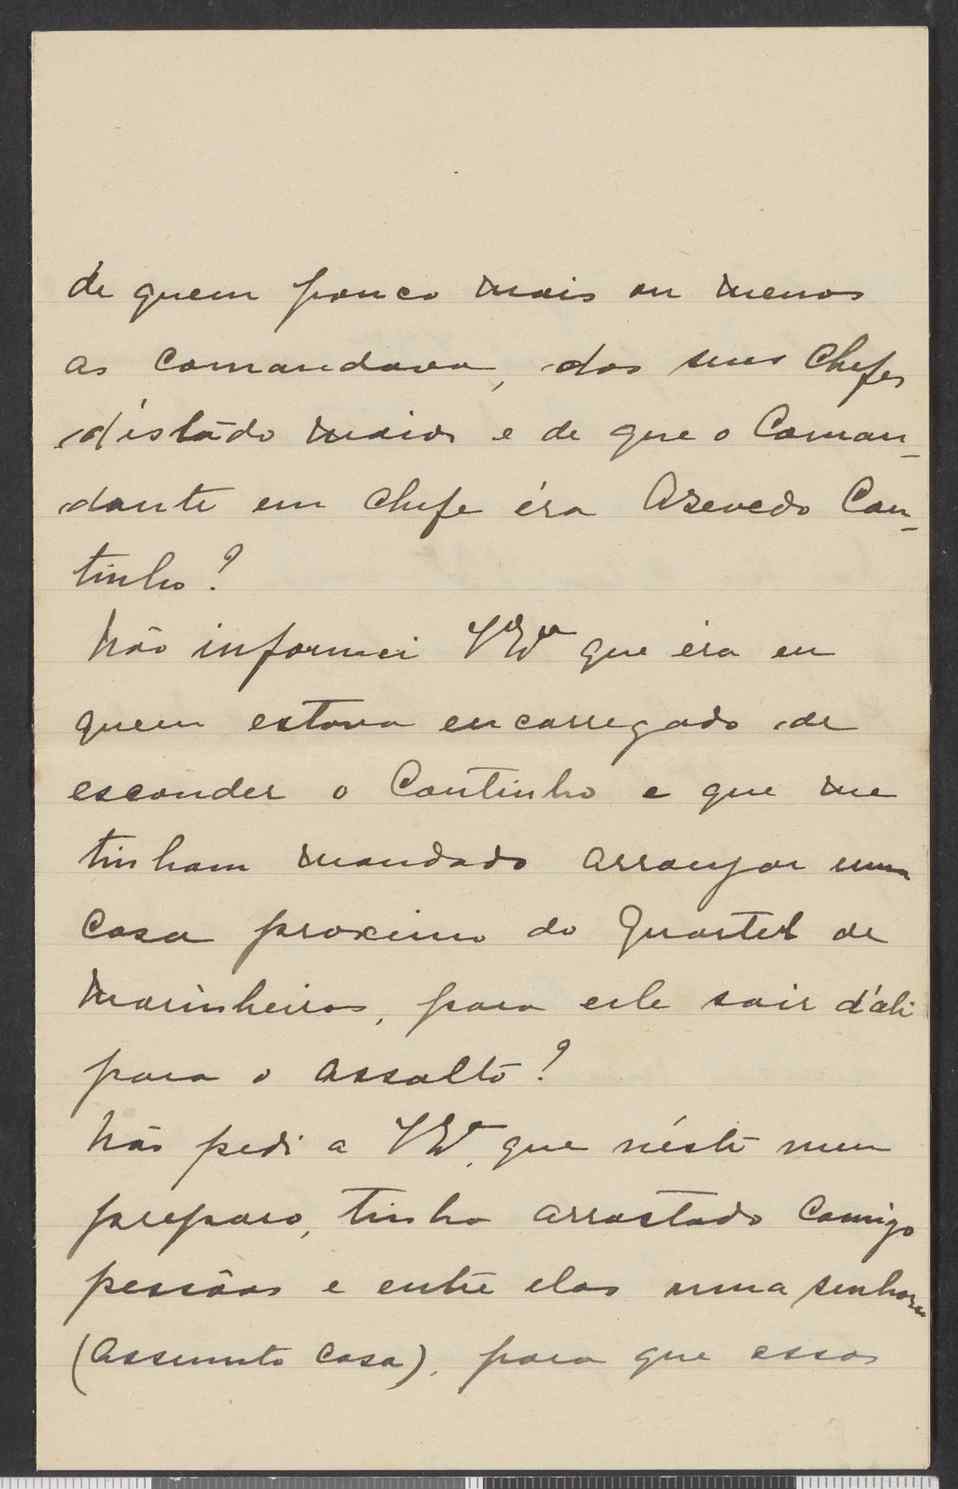 de quem pouco mais ou menos
as comandava, dos seus chefes
d'istádo maior e de que o Coman-
dante em chefe éra Azevedo Cou-
tinho?
Não informei VEx.ª que éra eu
quem estava encarregado de
esconder o Coutinho e que me
tinham mandado arranjar uma
casa proximo do Quartel de
Marinheiros, para ele sair d'ali
para o assalto?
Não pedi a VEx.ª que néste meu
preparo, tinha arrastado comigo
pessôas e entre elas uma senhora
(assunto casa), para que essas